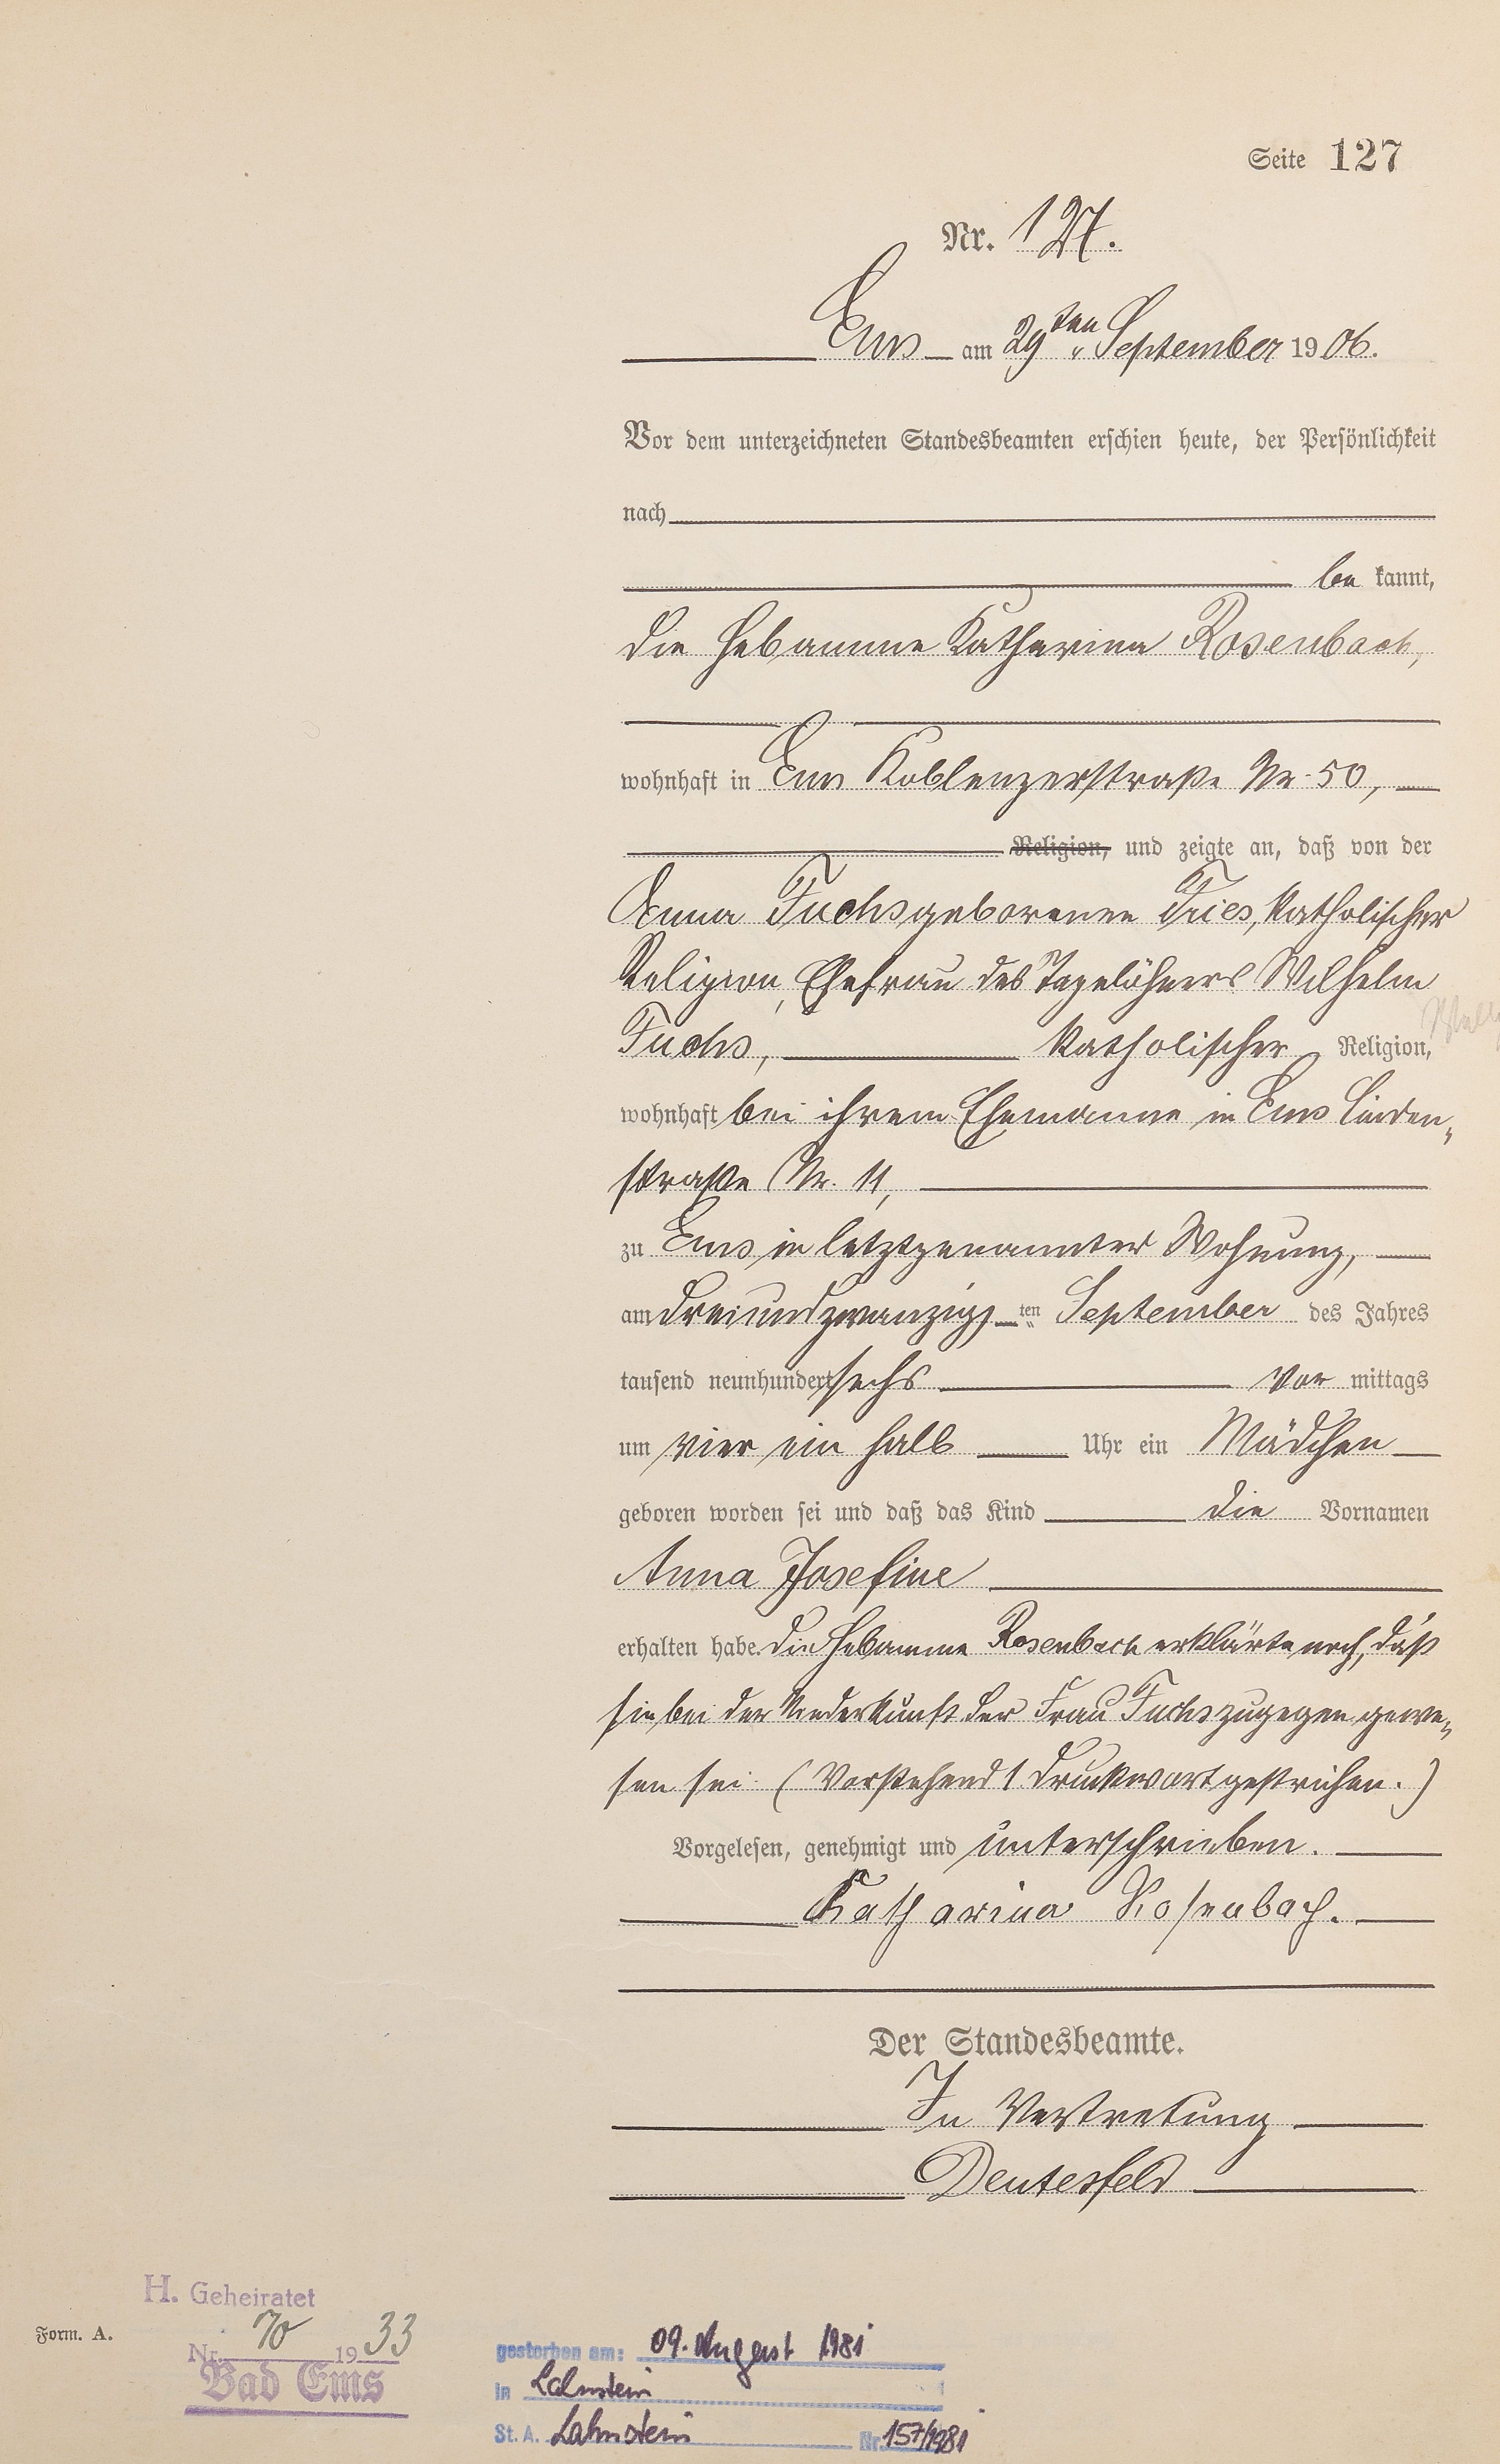 Seite 127
Nr. 127.
Ems am 29ten September 1906.
Vor dem unterzeichneten Standesbeamten erschien heute, der Persönlichkeit
nach
be kannt,
die Hebamme Katharina Rosenbach,
wohnhaft in Ems Koblenzerstraße Nr. 50,
Religion, und zeigte an, daß von der
Anna Fuchs geborenen Fries, katholischer
Religion, Ehefrau des Tagelöhners Wilhelm
Fuchs, katholischer Religion,
wohnhaft bei ihrem Ehemanne in Ems Linden-
straße Nr. 11,
zu Ems in letztgenannter Wohnung,
am dreiundzwanzig ten September des Jahres
tausend neunhundert sechs vor mittags
um vier ein halb Uhr ein Mädchen
geboren worden sei und daß das Kind die Vornamen
Anna Josefine
erhalten habe. Die Hebamme Rosenbach erklärte noch, daß
sie bei der Niederkunft der Frau Fuchs zugegen gewe-
sen sei. (Vorstehend 1 Druckwort gestrichen.)
Vorgelesen, genehmigt und unterschrieben.
Katharina Rosenbach.
Der Standesbeamte.
In Vertretung
Deutesfeld
H. Geheiratet
Nr. 70 1933
Bad Ems
Form. A.
gestorben am: 09. August 1981
in Lahnstein
St. A. Lahnstein Nr. 157/1981